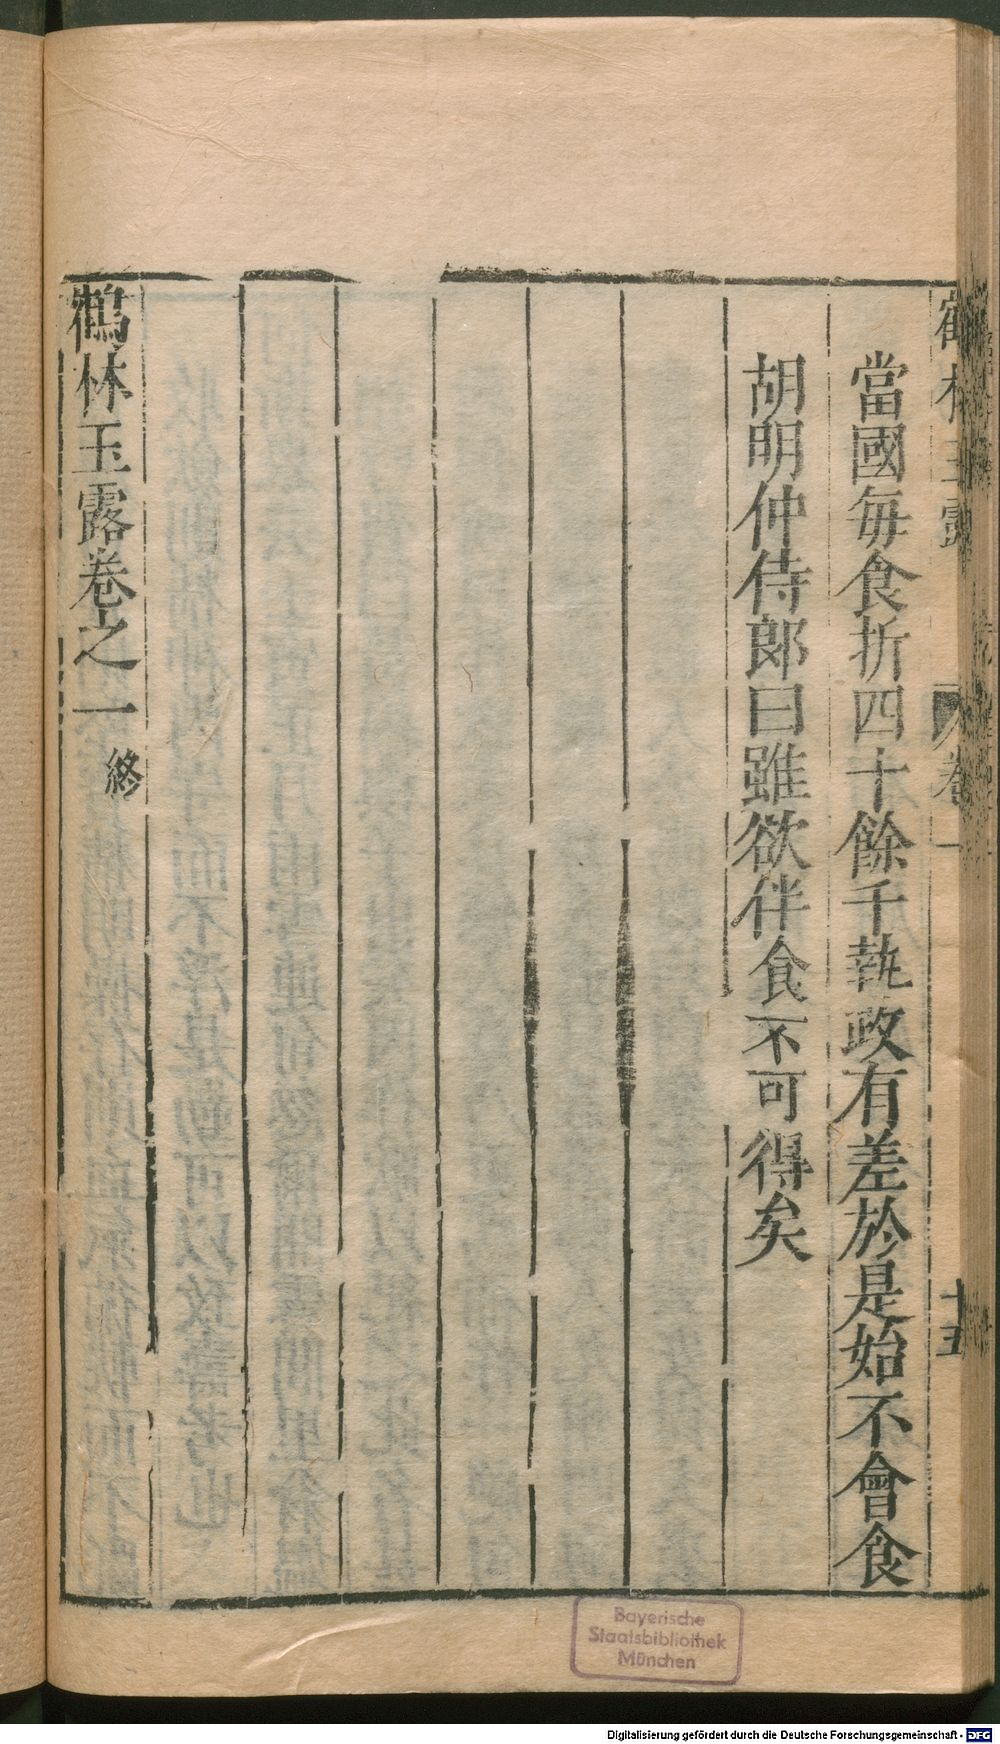 當國每食折四十餘千執政有差於是始不會食
胡明仲侍郎曰雖欲伴食不可得矣
鶴林玉露卷之一 終
卷一
十五
Bayerische
Staatsbibliothek
München
Digitalisierung gefördert durch die Deutsche Forschungsgemeinschaft - DFG